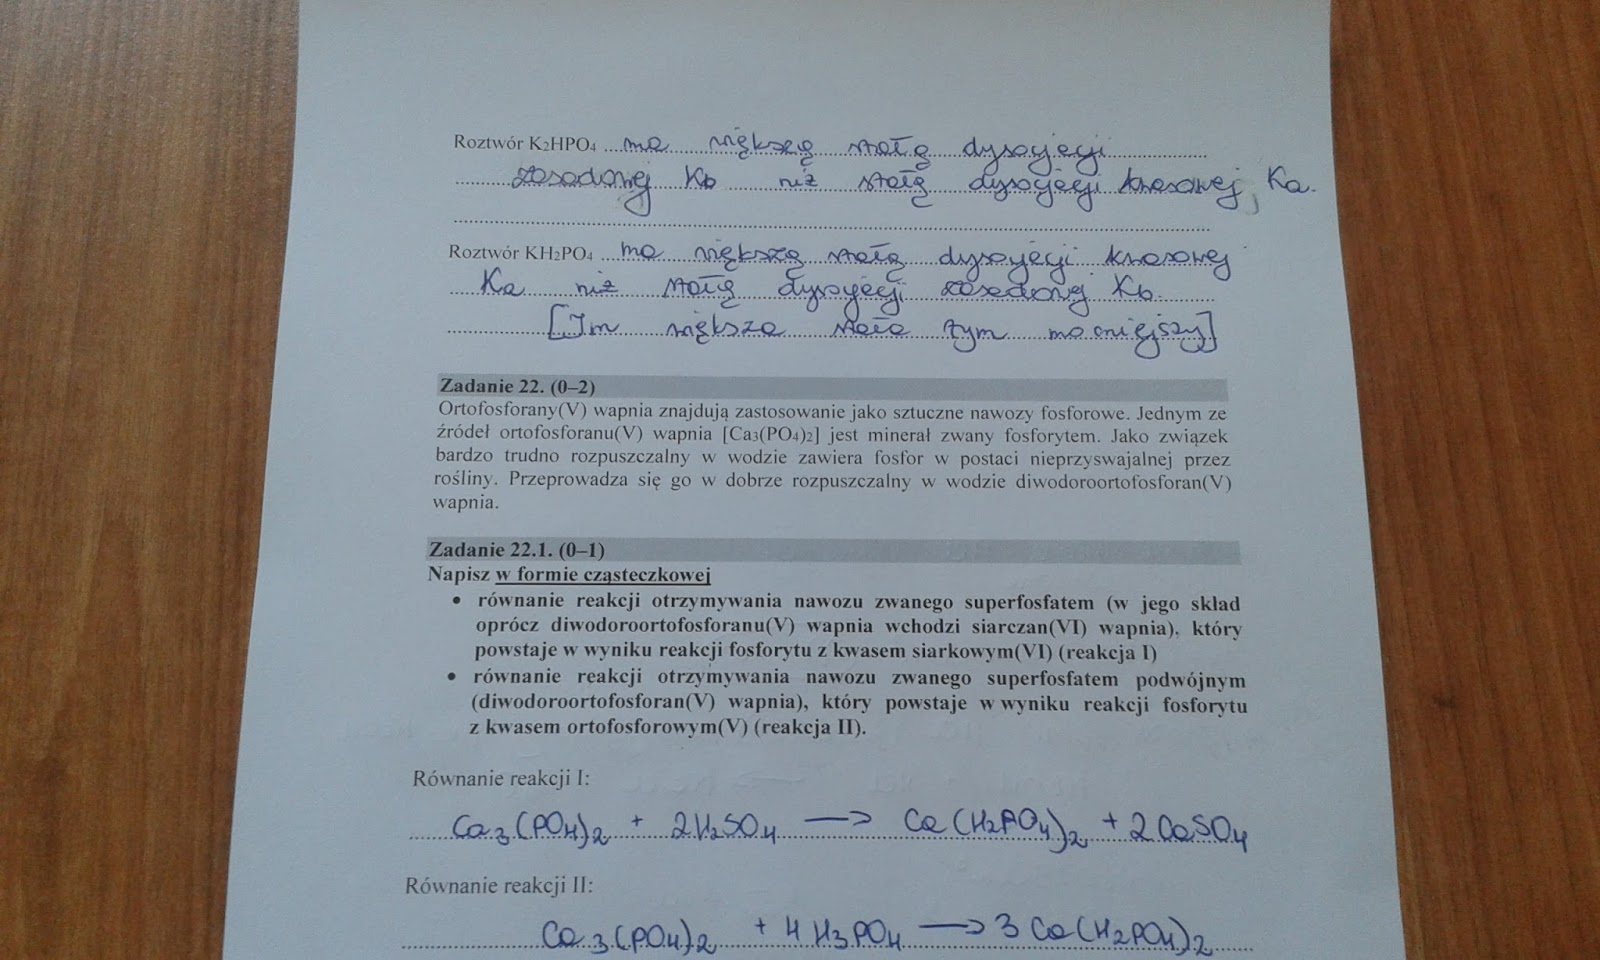 Roztwór K2HPO4 ma większą stałą dysocjacji
zasadowej Kb niż stałą dysocjacji kwasowej Ka.
Roztwór KH2PO4 ma większą stałą dysocjacji kwasowej
Ka niż stałą dysocjacji zasadowej Kb.
[Im większa stała tym mocniejszy]
Zadanie 22. (0–2)
Ortofosforany(V) wapnia znajdują zastosowanie jako sztuczne nawozy fosforowe. Jednym ze
źródeł ortofosforanu(V) wapnia [Ca3(PO4)2] jest minerał zwany fosforytem. Jako związek
bardzo trudno rozpuszczalny w wodzie zawiera fosfor w postaci nieprzyswajalnej przez
rośliny. Przeprowadza się go w dobrze rozpuszczalny w wodzie diwodoroortofosforan(V)
wapnia.
Zadanie 22.1. (0–1)
Napisz w formie cząsteczkowej
• równanie reakcji otrzymywania nawozu zwanego superfosfatem (w jego skład
oprócz diwodoroortofosforanu(V) wapnia wchodzi siarczan(VI) wapnia), który
powstaje w wyniku reakcji fosforytu z kwasem siarkowym(VI) (reakcja I)
• równanie reakcji otrzymywania nawozu zwanego superfosfatem podwójnym
(diwodoroortofosforan(V) wapnia), który powstaje w wyniku reakcji fosforytu
z kwasem ortofosforowym(V) (reakcja II).
Równanie reakcji I:
Ca3(PO4)2 + 2H2SO4 → Ca(H2PO4)2 + 2CaSO4
Równanie reakcji II:
Ca3(PO4)2 + 4H3PO4 → 3Ca(H2PO4)2